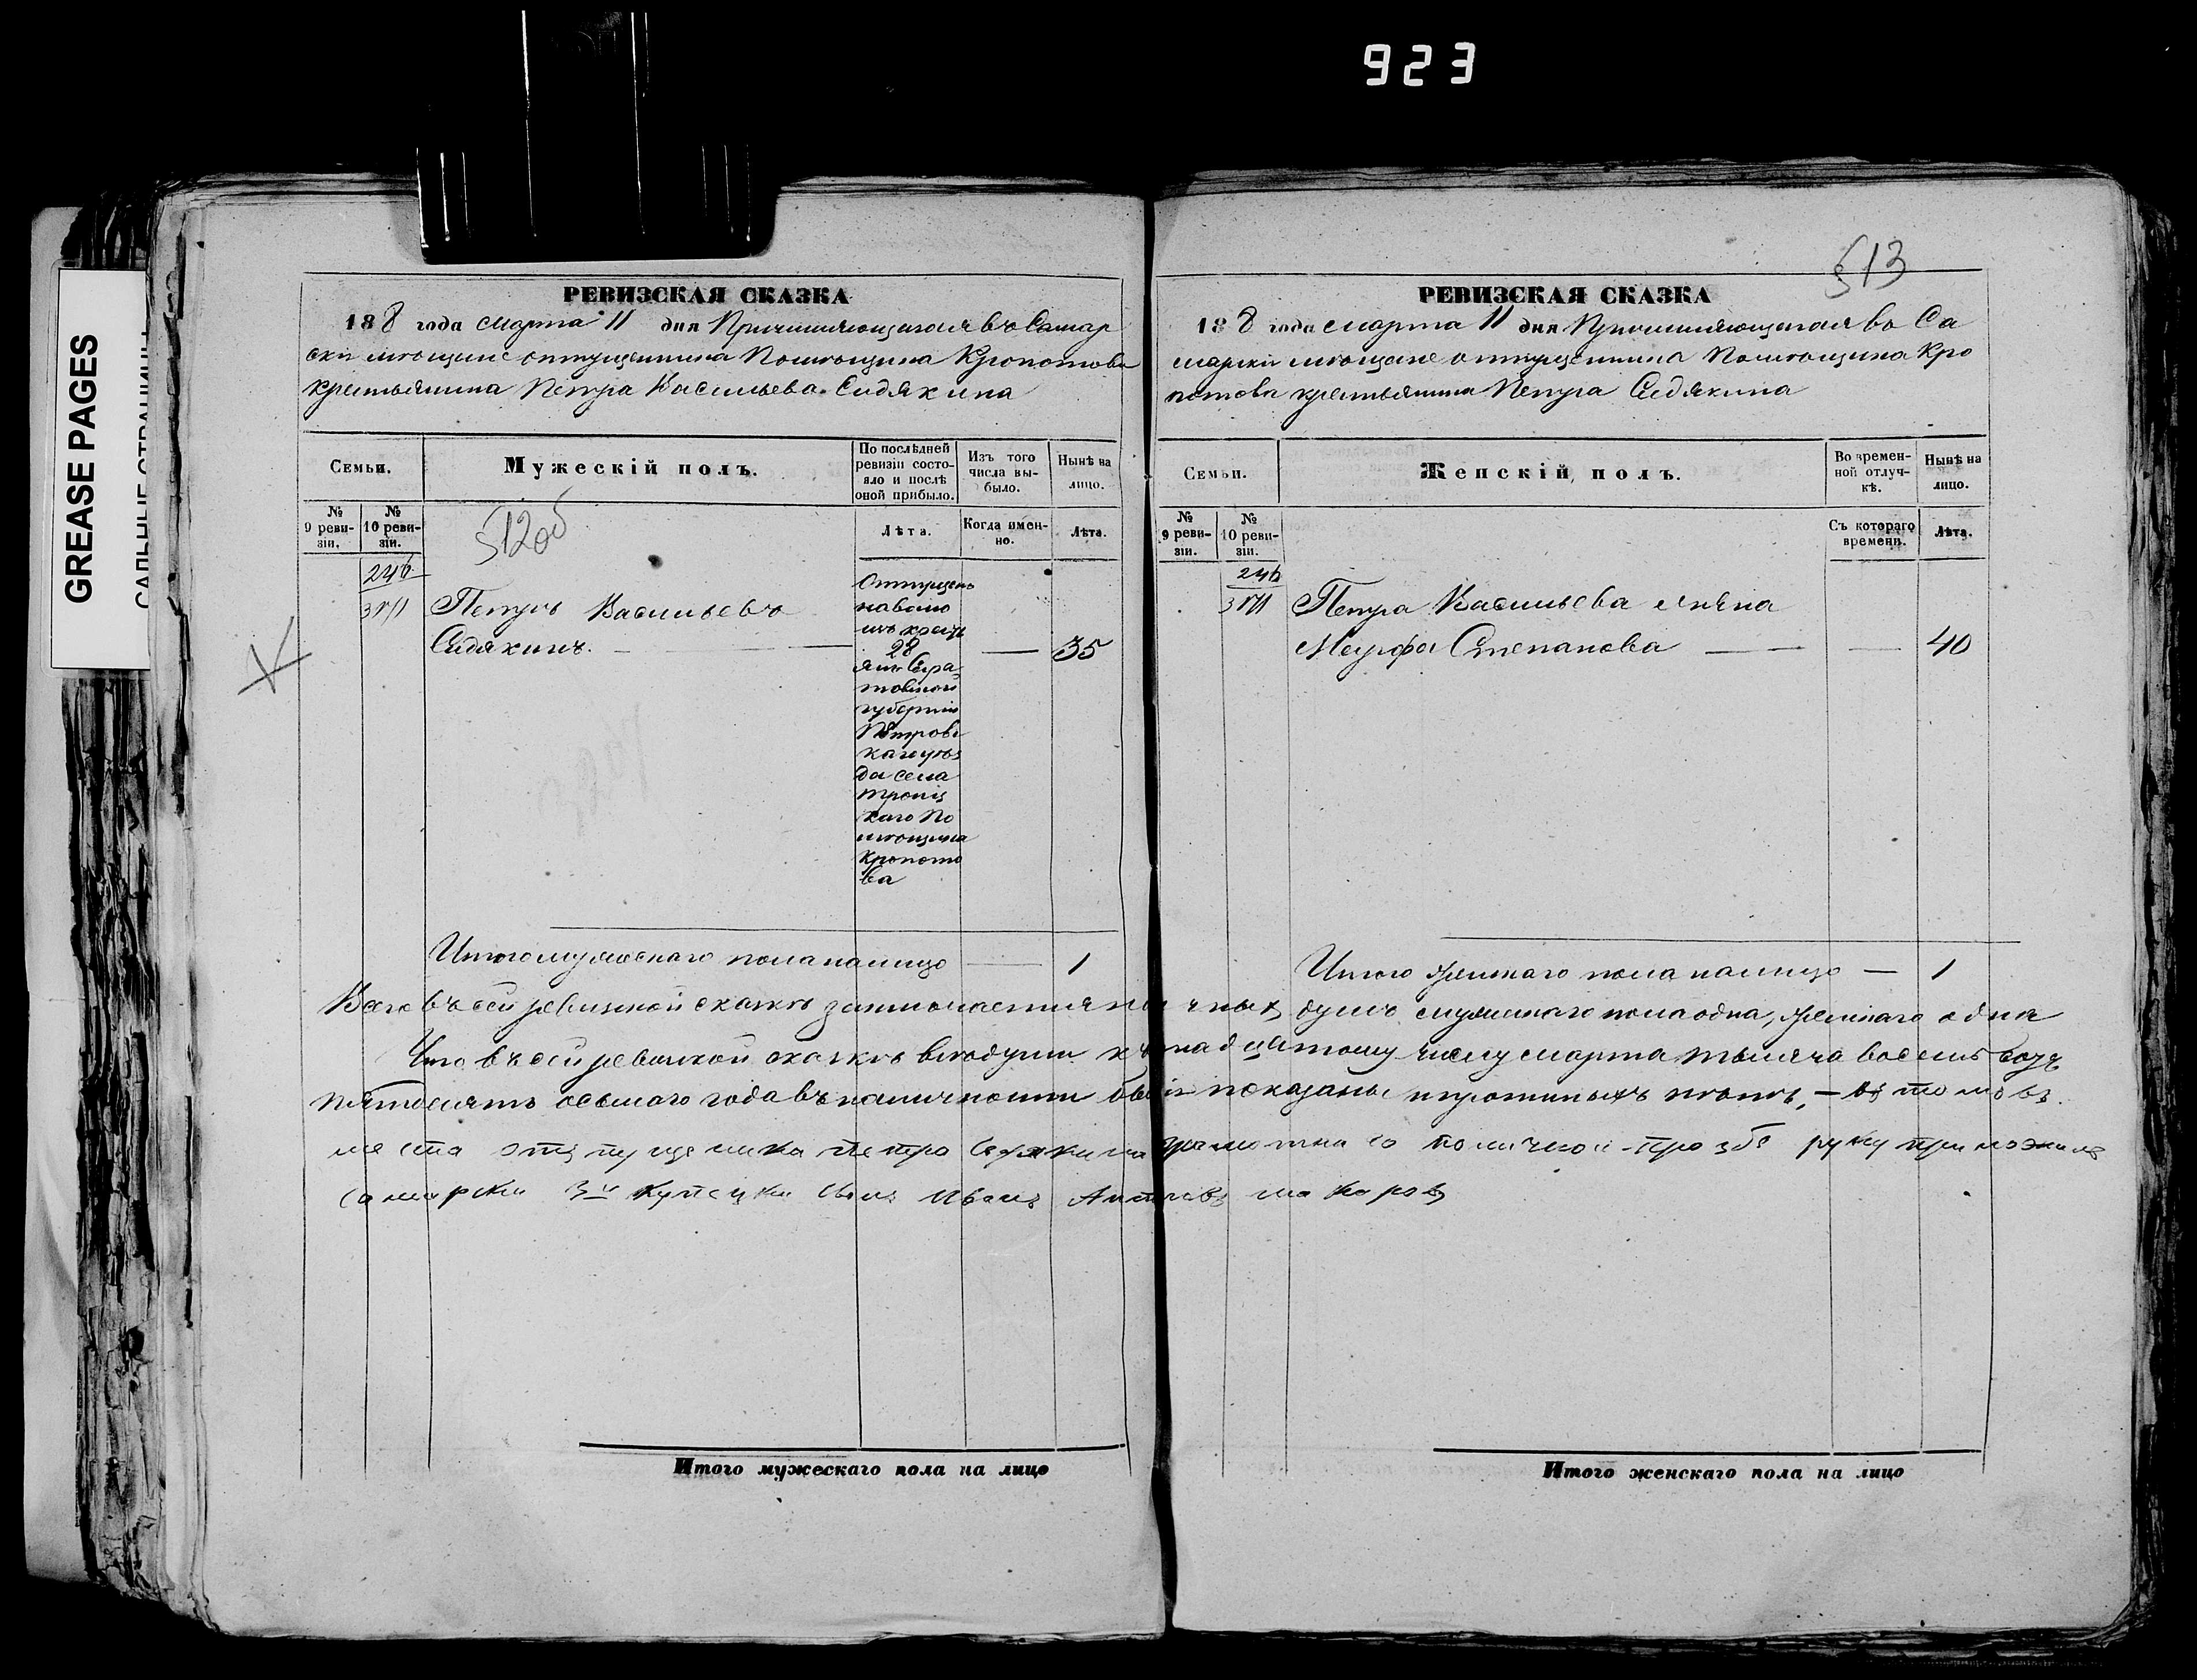 923
GREASE PAGES
513
РЕВИЗСКАЯ СКАЗКА
188 года марта 11 дня Причисляющагося въ Самар
ски мѣщане отпущенника Помѣщика Кропотова
крестьянина Петра Васильева Сидякина
Семьи.
Мужескій полъ.
По послѣдней
ревизіи состо-
яло и послѣ
оной прибыло.
Изъ того
числа вы-
было.
Нынѣ на
лицо.
№
9 реви-
зіи.
№
10 реви-
зіи.
512об
Лѣта.
Когда имен-
но.
Лѣта.
246
Петръ Васильевъ
Сидякинъ.
35
Отпущенъ
наволю
изъ крест
28
янъ Сара
товской
губерніи
Петровс
кагоуѣз
да села
Троиц
каго По
мѣщика
Кропото
ва
Итогомужескаго полана лицо 1
РЕВИЗСКАЯ СКАЗКА
188 года марта 11 дня Причисляющагося во Са
марски мѣщане отпущенника Помѣщика Кро
потова крестьянина Петра Сидякина
Семьи.
Женскій полъ.
Во времен-
ной отлуч-
кѣ.
Нынѣ на
лицо.
№
9 реви-
зіи.
№
10 реви-
зіи.
Съ котораго
времени.
Лѣта.
246
Петра Васильева жена
Марфа Степанова 40
Итого женскаго пола налицо — 1
Всего въ сей ревизской сказкѣ заключается душъ мужескаго пола одна, женскаго одна
Что въ сей ревизской сказкѣ всѣ души къ числу марта тысяча восемь сотъ
пятдесятъ осьмаго года въ наличности показаны и пропиныхъ нѣтъ, — въ томъ въ
места отпущеника Петра Седякина по личной прозбе руку приложилъ
самарски 3й купецки сынъ Иванъ Макаровъ
Итого мужескаго пола на лицо
Итого женскаго пола на лицо